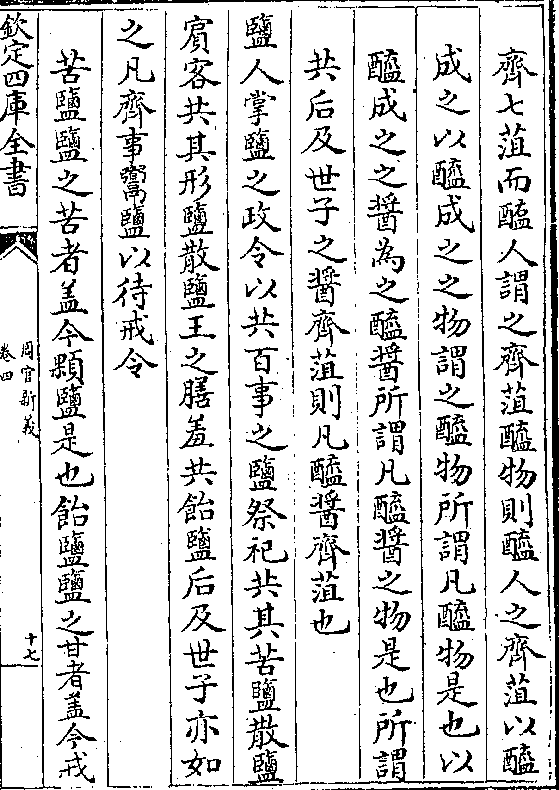 齊七菹而醯人謂之齊菹醯物則醯人之齊菹以醯
成之以醯成之之物謂之醯物所謂凡醯物是也以
醯成之之醬為之醯醬所謂凡醯醬之物是也所謂
共后及世子之醬齊菹則凡醯醬齊菹也
鹽人掌鹽之政令以共百事之鹽祭祀共其苦鹽散鹽
賓客共其形鹽散鹽王之膳羞共飴鹽后及世子亦如
之凡齊事鬻鹽以待戒令
苦鹽鹽之苦者盖今顆鹽是也飴鹽鹽之甘者盖今戎
欽定四庫全書
周官新義
卷四
十七